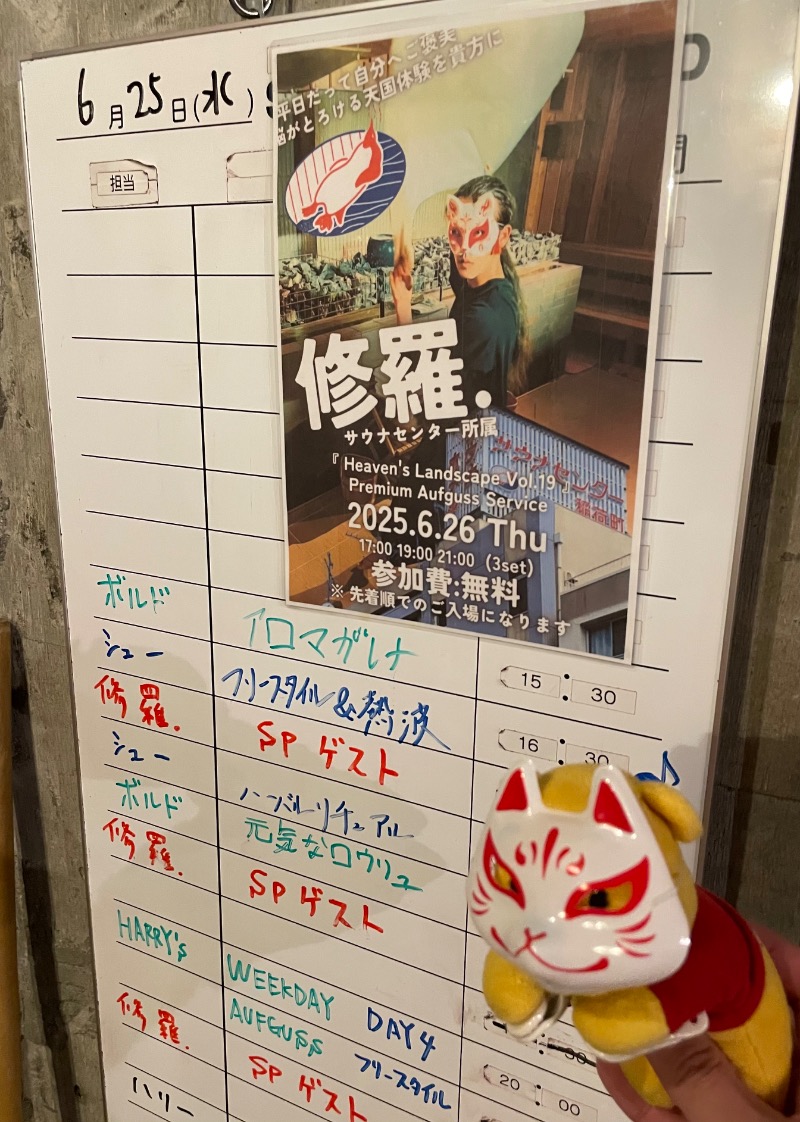 6月25日(水)
担当
平日だって自分へご褒美
脳がとろける天国体験を貴方に
修羅.
サウナセンター所属
『Heaven's Landscape Vol.19』
Premium Aufguss Service
サウナセンター
稲荷町
2025.6.26 Thu
17:00 19:00 21:00（3set）
参加費:無料
※ 先着順でのご入場になります
ボルド イロマガレナ 15:30
シュー フリースタイル&熱波 16:30
修羅. SPゲスト
シュー ハーバルリチュアル
ボルド 元気なロウリュ
修羅. SPゲスト
HARRY's WEEKDAY DAY4
AUFGUSS フリースタイル
修羅. SPゲスト 20:00
ハリー